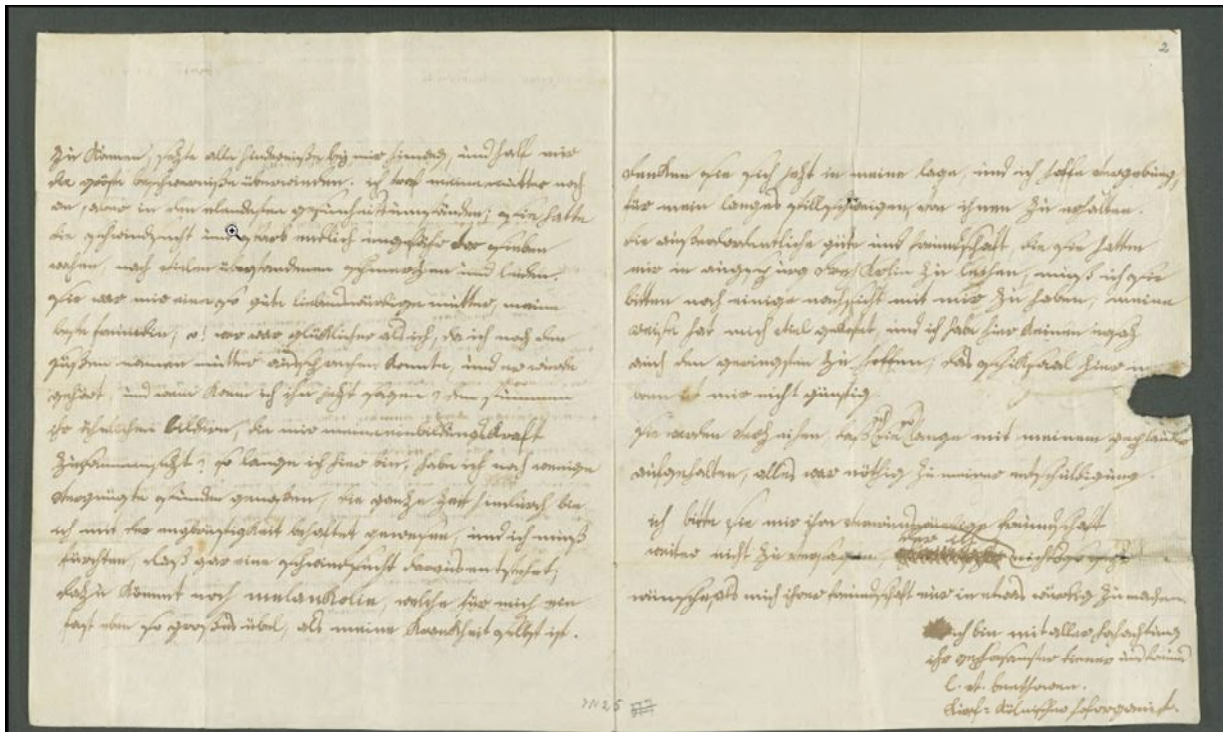 zu können, sezte alle hinderniße bey mir hinweg, und half mir
die gröste beschwerniße überwinden. ich traf meine mutter noch
an, aber in den elendesten gesundheitsumständen; sie hatte
die schwindsucht und starb endlich ungefähr vor sieben
wochen, nach vielen überstandenen schmerzen und leiden.
sie war mir eine so gute liebenswürdige mutter, meine
beste freundin; o! wer war glücklicher als ich, da ich noch den
süßen namen mutter aussprechen konnte, und er wurde
gehört, und wem kann ich ihn jezt sagen? den stummen
ihr ähnlichen bildern, die mir meine einbildungskraft
zusammensezt? so lange ich hier bin, habe ich noch wenige
vergnügte stunden genoßen, die ganze zeit hindurch bin
ich mit der engbrüstigkeit behaftet gewesen, und ich muß
fürchten, daß gar eine schwindsucht daraus entstehet;
dazu kömmt noch melankolie, welche für mich ein
fast eben so großes übel, als meine krankheit selbst ist.
2
denken sie sich jezt in meine lage, und ich hoffe vergebung,
für mein langes stillschweigen, von ihnen zu erhalten.
die außerordentliche güte und freundschaft, die sie hatten
mir in augspurg drey k'rolin zu leihen, muß ich sie
bitten noch einige nachsicht mit mir zu haben; meine
reise hat mich viel gekostet, und ich habe hier keinen ersaz
auch den geringsten zu hoffen; das schiksaal hier in
bonn ist mir nicht günstig.
sie werden verzeihen, daß ich sie so lange mit meinem geplauder
aufgehalten, alles war nöthig zu meiner entschuldigung.
ich bitte sie mir ihre verehrungswürdige freundschaft
weiter nicht zu versagen, der ich nichts so sehr
wünsche, als mich ihrer freundschaft nur in etwas würdig zu machen.
ich bin mit aller hochachtung
ihr gehorsamster diener und freund
l. v. beethowen.
kurf= kölnischer hoforganist.